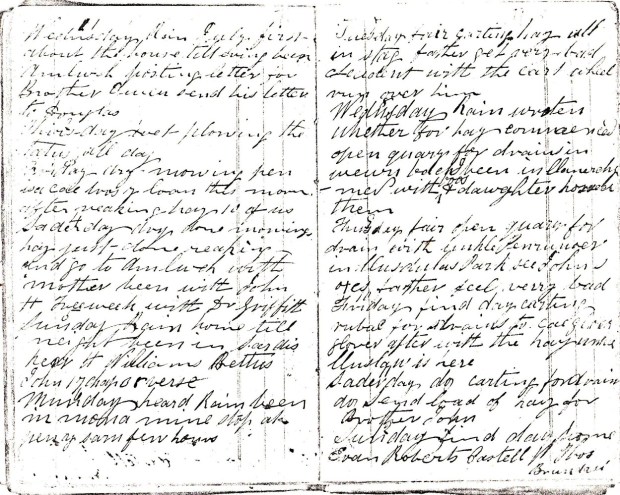 Wednsday Rain July first
about the house till evning been
Amlwch posting letter for
Brother Owen send his letter
to Douglas
Thursday wet plowing the
all day
Friday dry mowing pen
this morn
after making hay 10 of us
Saderday dry done mowing
hay just done reaping
and go to Amlwch with
mother been with John
H Treeweek with Dr Griffith
Sunday Rain home till
night been in Sardis
hear H Williams Bethus
John 17 chap 3 verse
Munday heard Rain been
in mona mine stop at
few hours
Tuesday fair carting hay all
in stag father get very bad
accident with the cart wheel
run over him
Wednsday Rain wroten
whether for hay commenced
open quary for drain in
been in Llanerch
med with & daughter home
them
Thursday fair open quary for
drain with unkle
in Park see John s
father feel verry bad
Friday find dry carting
rubal for drains to
after with the hay unkle
is here
Saderday do carting for drain
do send load of hay for
Brother John
Sunday find day home
Evan Roberts